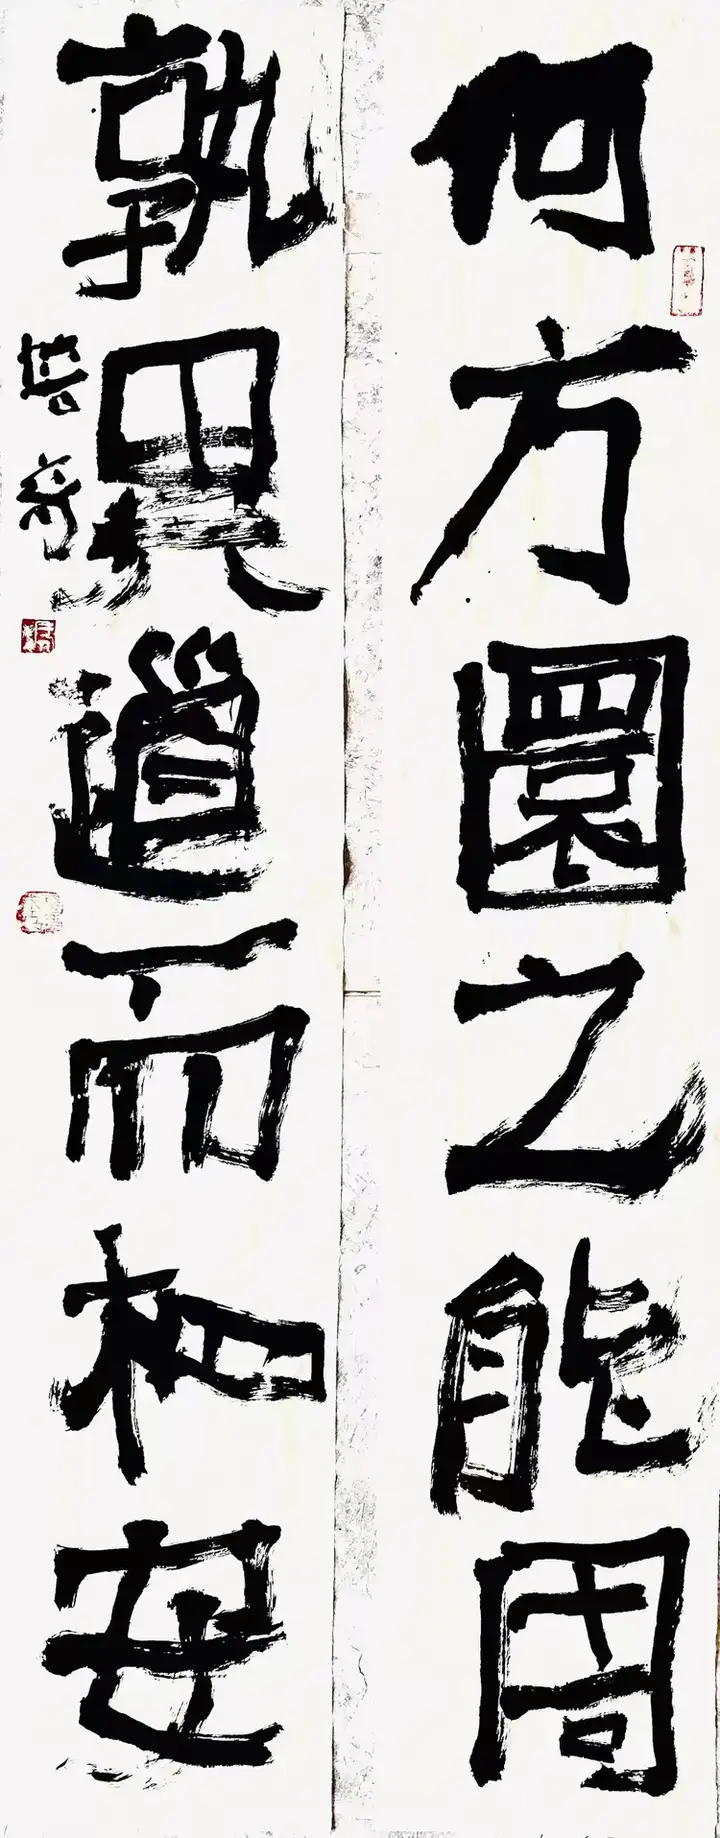 何方圜之能周
孰異道而相安